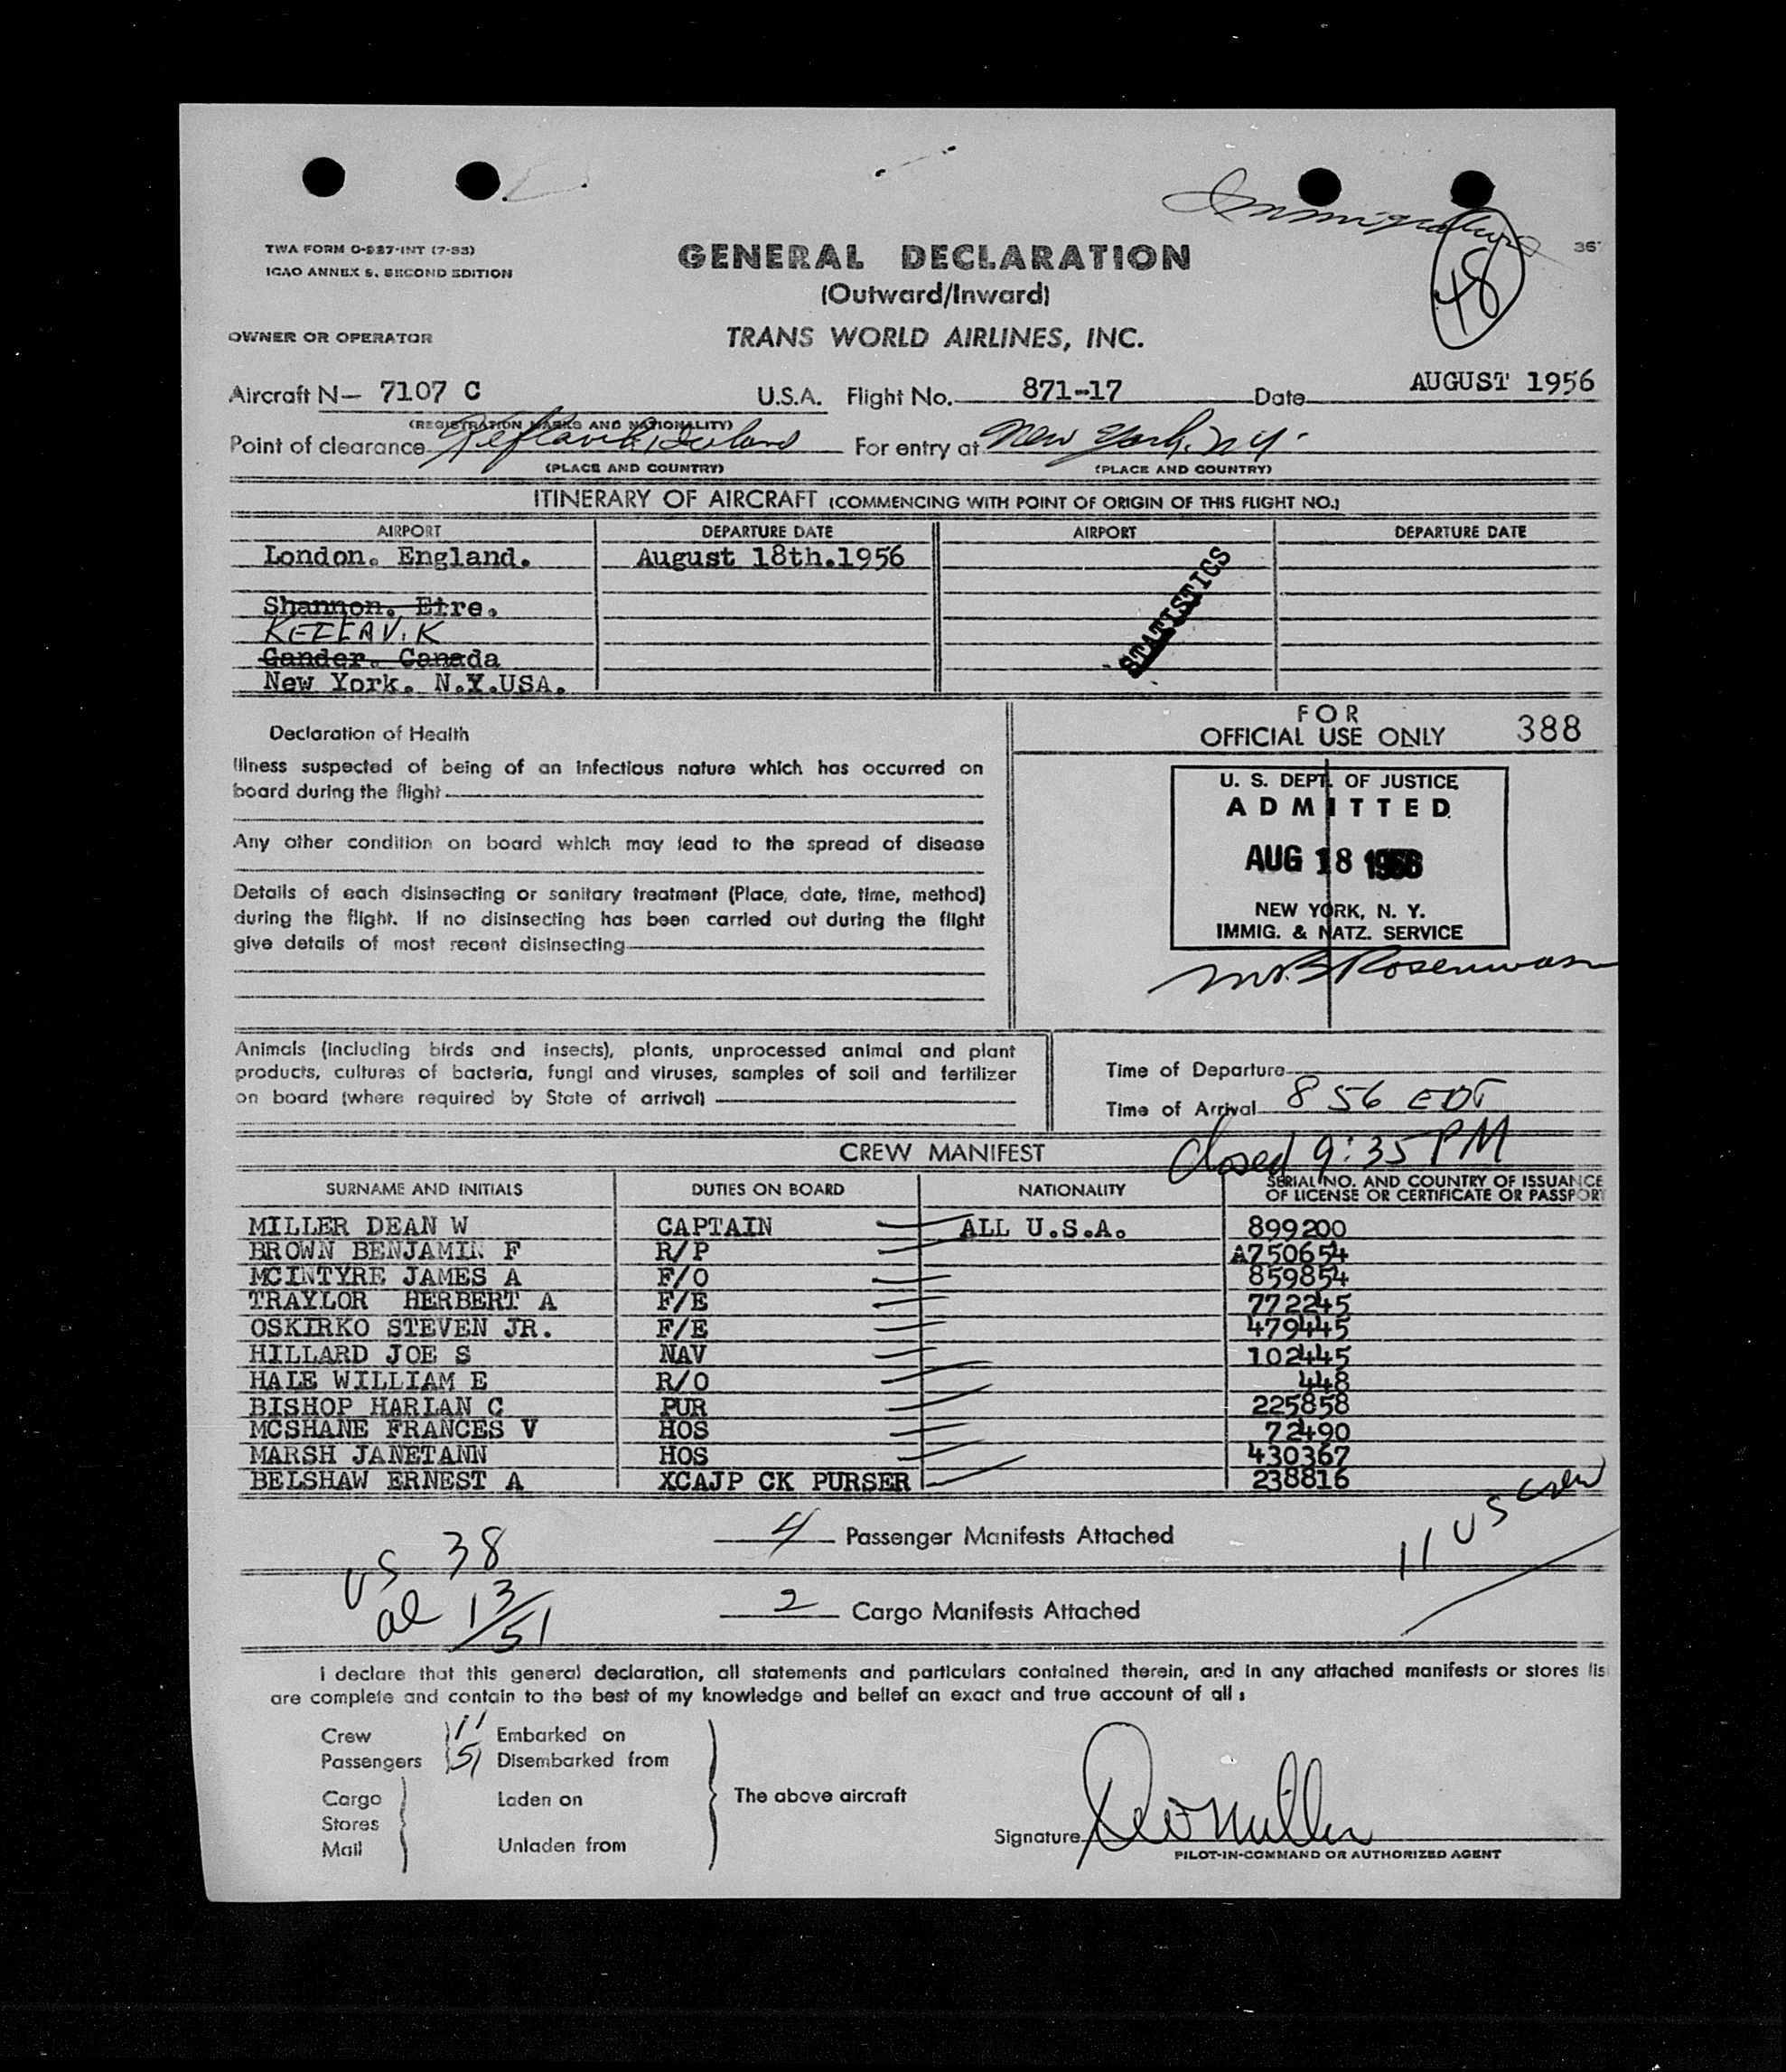 Immigration
48
36
TWA FORM O-927-INT (7-53)
ICAO ANNEX 9, SECOND EDITION
GENERAL DECLARATION
(Outward/Inward)
OWNER OR OPERATOR TRANS WORLD AIRLINES, INC.
Aircraft N— 7107 C U.S.A. Flight No. 871-17 Date AUGUST 1956
(REGISTRATION MARKS AND NATIONALITY)
Point of clearance Keflavik, Iceland For entry at New York, N.Y.
(PLACE AND COUNTRY) (PLACE AND COUNTRY)
ITINERARY OF AIRCRAFT (COMMENCING WITH POINT OF ORIGIN OF THIS FLIGHT NO.)
AIRPORT DEPARTURE DATE AIRPORT DEPARTURE DATE
London. England. August 18th.1956
STATISTICS
Shannon. Eire.
KEFLAVIK
Gander. Canada
New York. N.Y.USA.
Declaration of Health
Illness suspected of being of an infectious nature which has occurred on
board during the flight
Any other condition on board which may lead to the spread of disease
Details of each disinsecting or sanitary treatment (Place, date, time, method)
during the flight. If no disinsecting has been carried out during the flight
give details of most recent disinsecting
FOR
OFFICIAL USE ONLY 388
U. S. DEPT. OF JUSTICE
ADMITTED
AUG 18 1956
NEW YORK, N. Y.
IMMIG. & NATZ. SERVICE
Animals (including birds and insects), plants, unprocessed animal and plant
products, cultures of bacteria, fungi and viruses, samples of soil and fertilizer
on board (where required by State of arrival)
Time of Departure
Time of Arrival 8 56 EDT
closed 9:35 PM
CREW MANIFEST
SURNAME AND INITIALS DUTIES ON BOARD NATIONALITY SERIAL NO. AND COUNTRY OF ISSUANCE
OF LICENSE OR CERTIFICATE OR PASSPORT
MILLER DEAN W CAPTAIN ALL U.S.A. 899200
BROWN BENJAMIN F R/P A750654
MCINTYRE JAMES A F/O 859854
TRAYLOR HERBERT A F/E 772245
OSKIRKO STEVEN JR. F/E 479445
HILLARD JOE S NAV 102445
HALE WILLIAM E R/O 448
BISHOP HARLAN C PUR 225858
MCSHANE FRANCES V HOS 72490
MARSH JANETANN HOS 430367
BELSHAW ERNEST A XCAJP CK PURSER 238816
11 US crew
4 Passenger Manifests Attached
US 38
al 13
51
2 Cargo Manifests Attached
I declare that this general declaration, all statements and particulars contained therein, and in any attached manifests or stores lis
are complete and contain to the best of my knowledge and belief an exact and true account of all :
Crew 11 Embarked on
Passengers 51 Disembarked from
Cargo Laden on
The above aircraft
Stores
Mail Unladen from
Signature
PILOT-IN-COMMAND OR AUTHORIZED AGENT